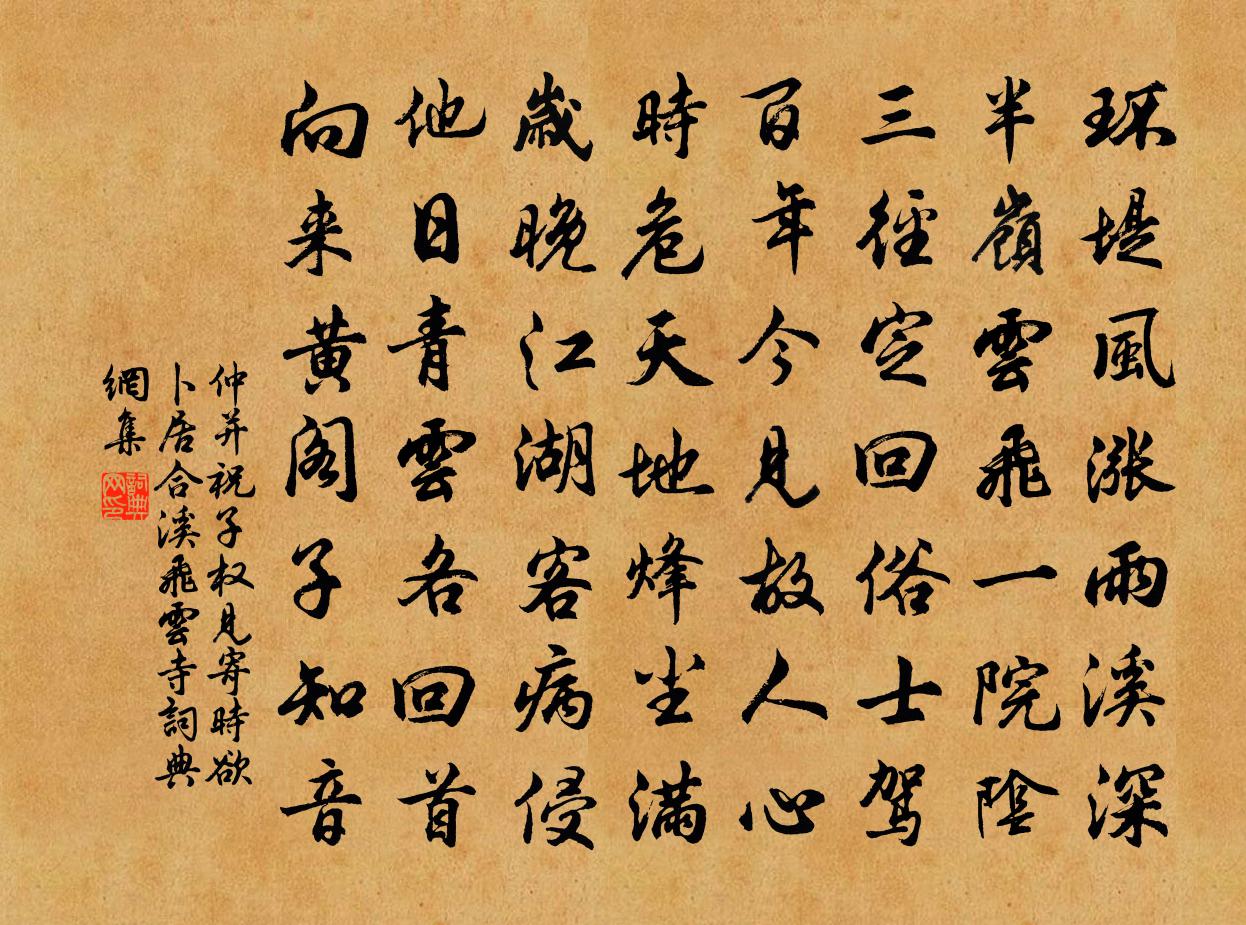 环堤風漲雨溪深
半嶺雲飛一院陰
三徑定回俗士駕
百年今見故人心
時危天地烽尘滿
歲晚江湖客病侵
他日青雲各回首
向来黄阁子知音
仲并祝子权見寄時欲
卜居合溪飛雲寺詞典
網集
詞典
网印